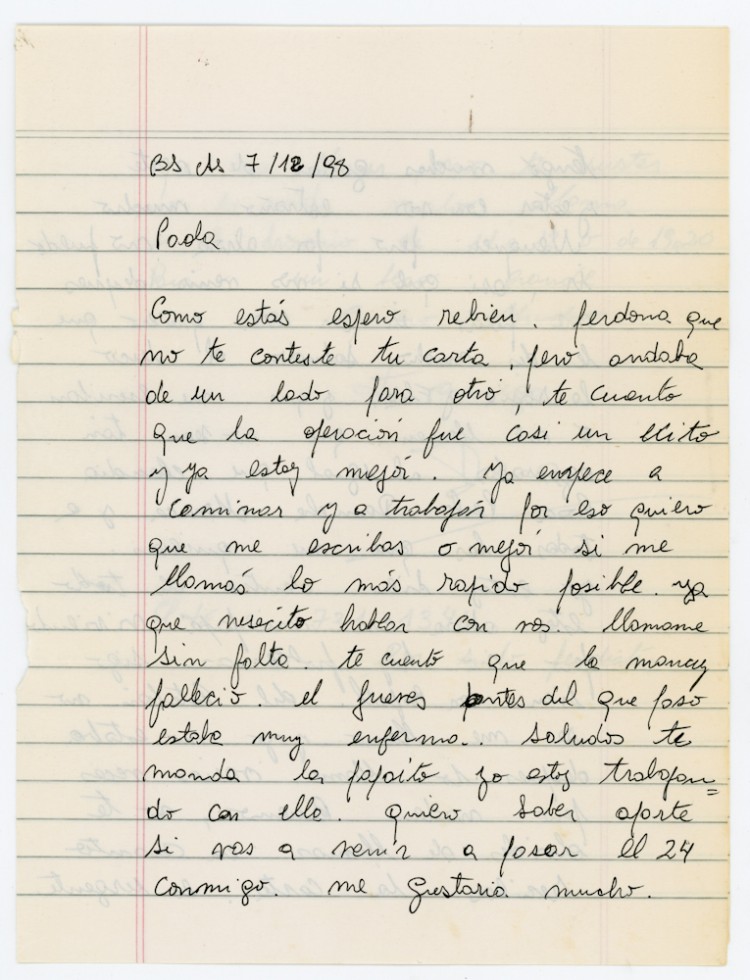 BS As 7/12/98
Paola
Como estás espero rebien. perdona que
no te conteste tu carta, pero andaba
de un lado para otro, te cuento
que la operación fue casi un exito
y ya estoy mejor. ya empece a
caminar y a trabajar por eso quiero
que me escribas o mejor si me
llamas lo más rapido posible. ya
que nesecito hablar con vos. llamame
sin falta. te cuento que la
fallecio. el jueves antes del que paso
estaba muy enferma.. saludos te
manda la papito yo estoy trabajan=
do con ella. quiero saber aparte
si vas a venir a pasar el 24
conmigo. me gustaria mucho.